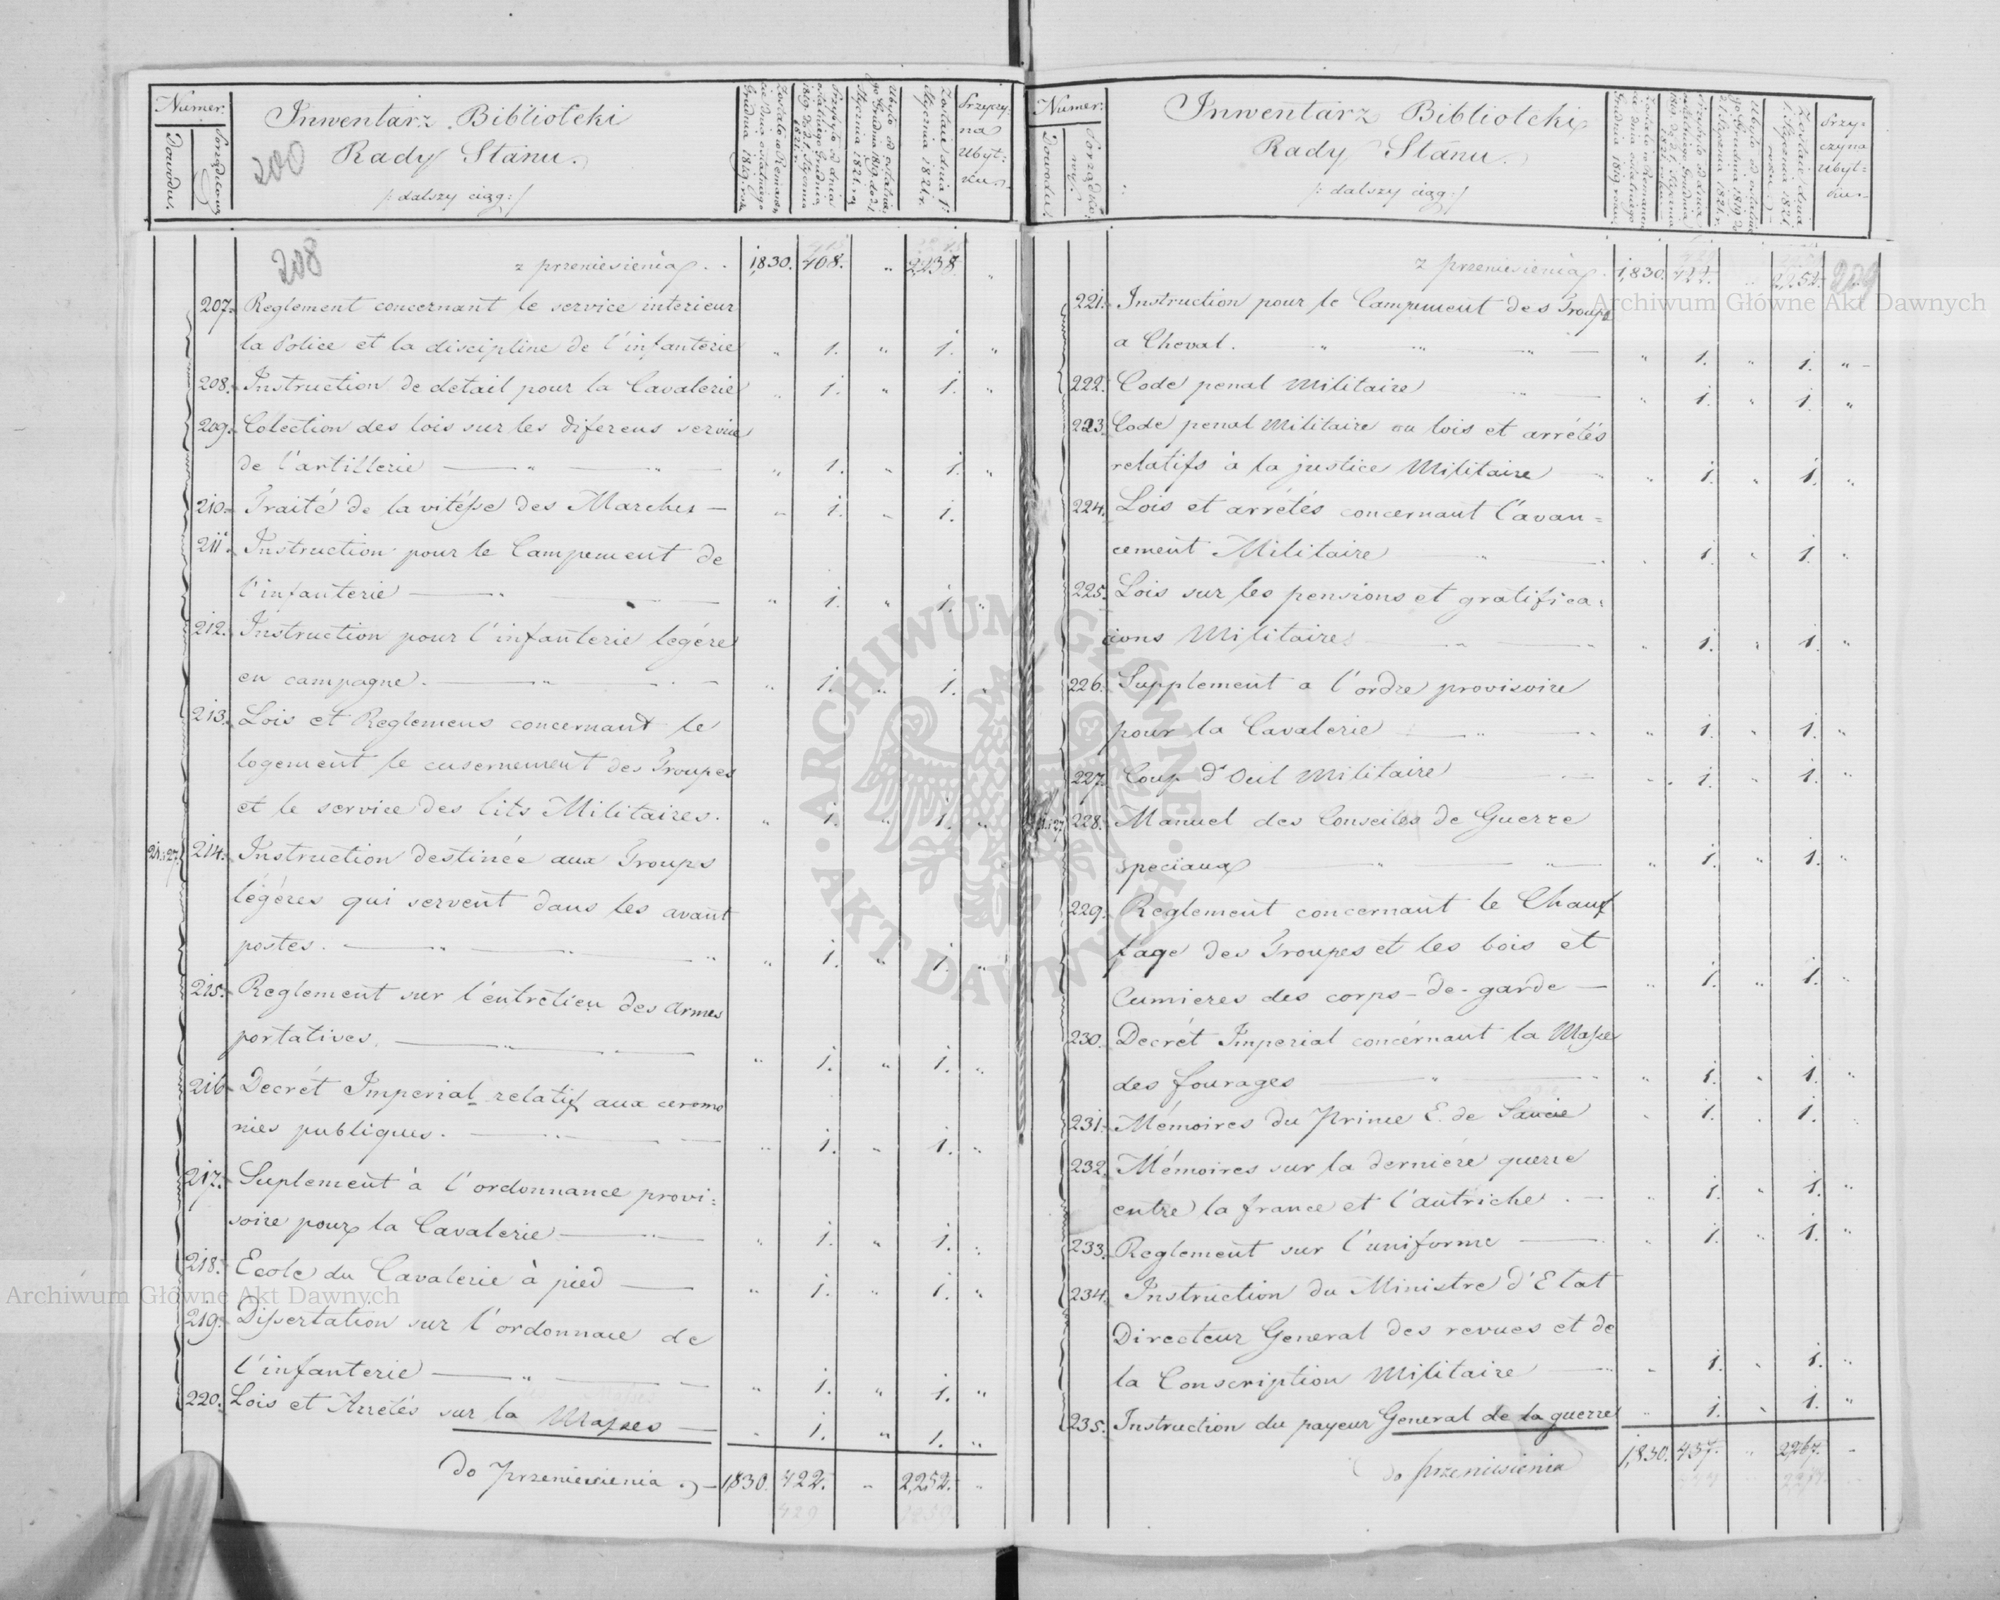 Numer
Dowodu.
Porządkowy
Inwentarz Biblioteki
Rady Stanu.
/: dalszy ciąg :/
200
Zostało w Remanencie dnia ostatniego Grudnia 1819. roku
Przybyło od dnia ostatniego Grudnia 1819. do d. 1. Stycznia 1821. r.
Ubyło od ostatniego Grudnia 1819. do d. 1. Stycznia 1821. r.
Zostaie dnia 1. Stycznia 1821. r.
Przyczyna Ubytku.
208
z przeniesienia . . 1,830. 408. " 2,238. "
207. Reglement concernant le service interieur
la Police et la discipline de l'infanterie " 1. " 1. "
208. Instruction de detail pour la Cavalerie " 1. " 1. "
209. Colection des lois sur les diferens service
de l'artillerie — " — " — " 1. " 1. "
210. Traité de la vitésse des Marches — " 1. " 1.
211. Instruction pour le Campement de
l'infanterie — " — " 1. " 1. "
212. Instruction pour l'infanterie legére
en campagne. — " — " 1. " 1. "
213. Lois et Reglemens concernant le
logement le casernement des Troupes
et le service des lits Militaires. " 1. " 1. "
21.27. 214. Instruction destinée aux Troups
légéres qui servent dans les avant
postes. — " — " " 1. " 1. "
215. Reglement sur l'entretien des Armes
portatives. — " — " 1. " 1. "
216. Decrét Imperial relatif aux ceremo
nies publiques. — " — " 1. " 1. "
217. Suplement à l'ordonnance provi:
soire pour la Cavalerie — " 1. " 1. "
218. Ecole du Cavalerie à pied — " 1. " 1. "
219. Dissertation sur l'ordonnace de
l'infanterie — " — " 1. " 1. "
220. Lois et Arrétés sur la Masses — " 1. " 1. "
do przeniesienia . — 1,830. 422. " 2,252. "
Numer
Dowodu.
Porządkowy.
Inwentarz Biblioteki
Rady Stanu.
/: dalszy ciąg :/
Przyczyna Ubytku.
z przeniesienia . 1,830. 422. 2,252. 209
221. Instruction pour le Campement des Troups
a Cheval. " " " — " 1. " 1. "
222. Code penal Militaire " 1. " 1. "
223. Code penal Militaire ou lois et arrétés
relatifs à la justice Militaire — " 1. " 1. "
224. Lois et arrétés concernant l'avan=
cement Militaire — " 1. " 1. "
225. Lois sur les pensions et gratifica:
cions Militaire. " — " 1. " 1. "
226. Supplement a l'ordre provisoire
pour la Cavalerie — " — " 1. " 1. "
227. Coup d'Oeil Militaire — " 1. " 1. "
228. Manuel des Conseiles de Guerre
speciaux — " — " 1. " 1. "
229. Reglement concernant le Chauf
fage des Troupes et les bois et
Cumieres des corps-de-garde — " 1. " 1. "
230. Decrét Imperial concérnant la Masse
des fourages — " — " 1. " 1. "
231. Mémoires du Prince E. de Savcie 1. 1.
232. Mémoires sur la derniére guerre
entre la france et l'autriche . — " 1. " 1. "
233. Reglement sur l'uniforme — " 1. " 1. "
234. Instruction du Ministre d'Etat
Directeur General des revues et de
la Conscription Militaire — " 1. " 1. "
235. Instruction du payeur General de la guerre " 1. " 1. "
do przeniesienia 1,830. 437. " 2,267. "
Archiwum Główne Akt Dawnych
Archiwum Główne Akt Dawnych
ARCHIWUM GŁÓWNE · AKT DAWNYCH ·